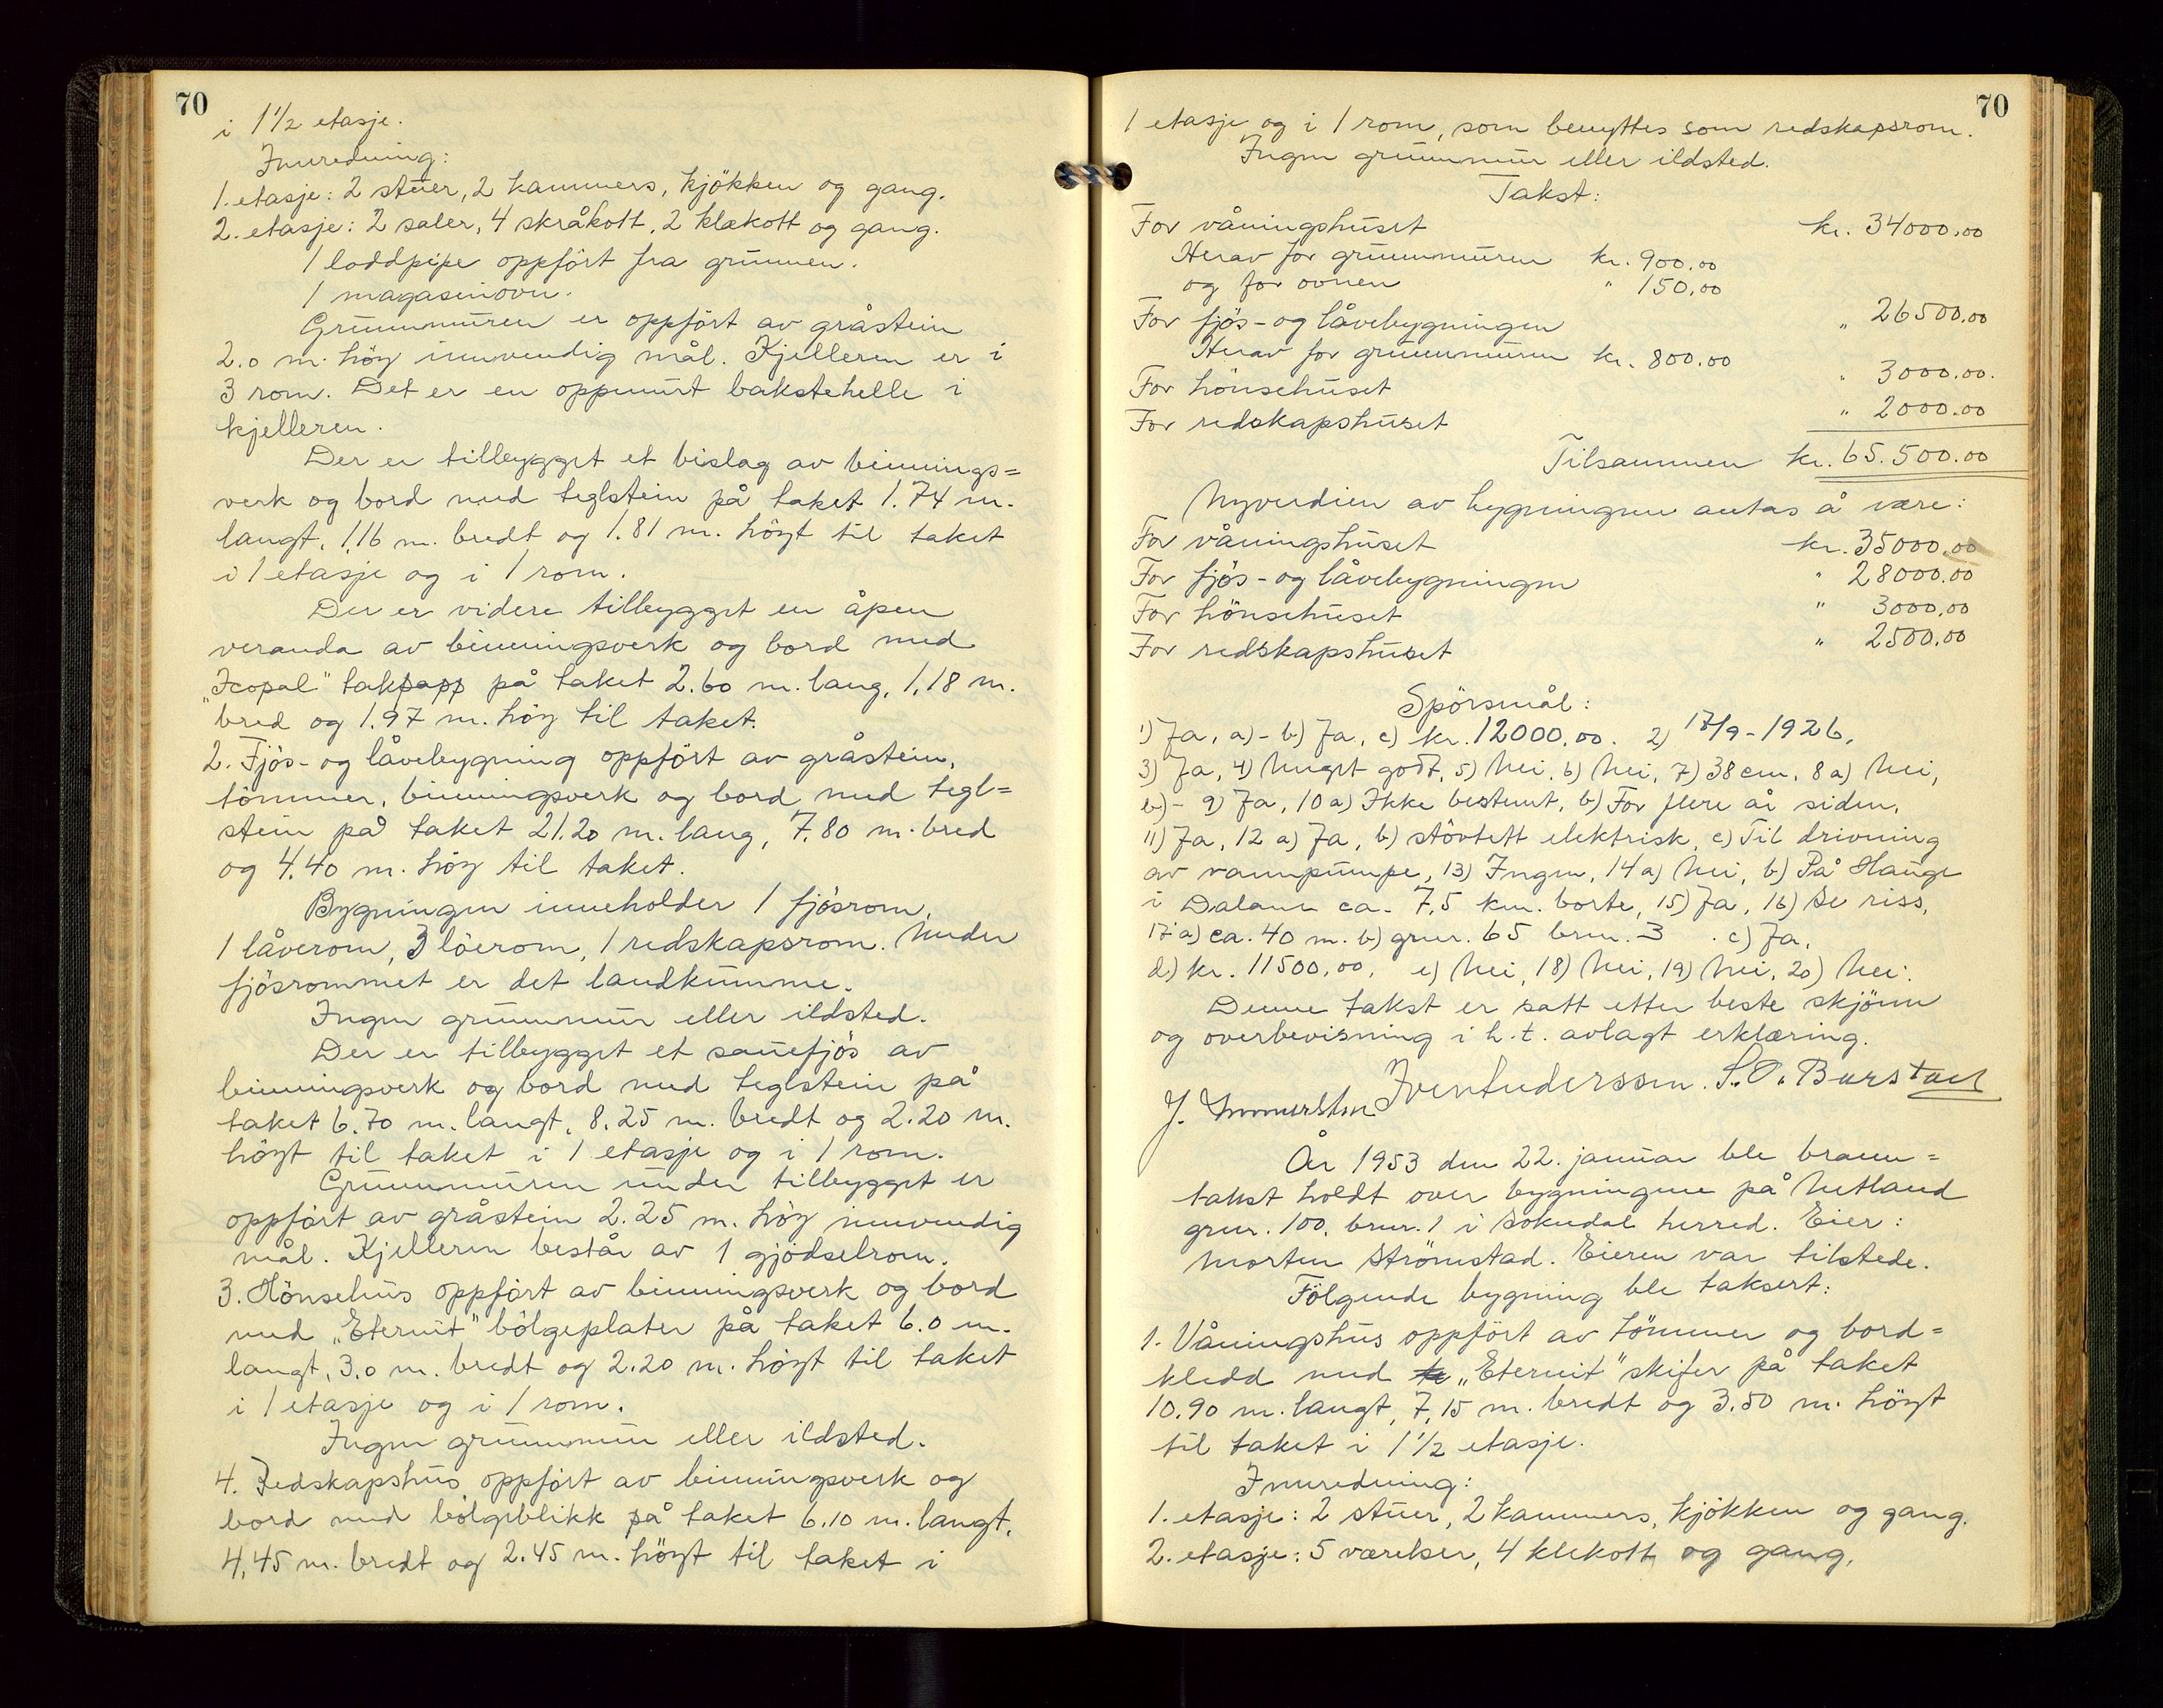 70
i 1 1/2 etasje.
Innredning:
1. etasje: 2 stuer, 2 kammers, kjökken og gang.
2. etasje: 2 saler, 4 skråkott, 2 klækott og gang.
1 loddpipe oppfört fra grunnen.
1 magasinovn.
Grunnmuren er oppfört av gråstein
2.0 m. höy innvendig mål. Kjelleren er i
3 rom. Det er en oppmurt bakstehelle i
kjelleren.
Der er tilbygget et bislag av binnings=
verk og bord med teglstein på taket 1.74 m.
langt, 1,16 m. bredt og 1.81 m. höyt til taket
i 1 etasje og i 1 rom.
Der er videre tilbygget en åpen
veranda av binningsverk og bord med
"Icopal" takpapp på taket 2.60 m. lang, 1,18 m.
bred og 1.97 m. höy til taket.
2. Fjös- og låvebygning oppfört av gråstein,
tömmer, binningsverk og bord med tegl=
stein på taket 21.20 m. lang, 7.80 m. bred
og 4.40 m. höy til taket.
Bygningen inneholder 1 fjösrom,
1 låverom, 3 löerom, 1 redskapsrom. Under
fjösrommet er det landkumme.
Ingen grunnmur eller ildsted.
Der er tilbygget et sauefjös av
binningsverk og bord med teglstein på
taket 6.70 m. langt, 8.25 m. bredt og 2.20 m.
höyt til taket i 1 etasje og i 1 rom.
Grunnmuren under tilbygget er
oppfört av gråstein 2.25 m. höy innvendig
mål. Kjelleren består av 1 gjödselrom.
3. Hönsehus oppfört av binningsverk og bord
med "Eternit" bölgeplater på taket 6.0 m.
langt, 3.0 m. bredt og 2.20 m. höyt til taket
i 1 etasje og i 1 rom.
Ingen grunnmur eller ildsted.
4. Redskapshus oppfört av binningsverk og
bord med bölgeblikk på taket 6.10 m. langt,
4,45 m. bredt og 2.45 m. höyt til taket i
70
1 etasje og i 1 rom, som benyttes som redskapsrom.
Ingen grunnmur eller ildsted.
Takst:
For våningshuset kr. 34000.00
Herav for grunnmuren kr. 900.00
og for ovnen " 150.00
For fjös- og låvebygningen " 26500.00
Herav for grunnmuren kr. 800.00
For hönsehuset " 3000.00.
For redskapshuset " 2000.00
Tilsammen kr. 65.500.00
Nyverdien av bygningene antas å være:
For våningshuset kr. 35000.00
For fjös- og låvebygningen " 28000.00
For hönsehuset " 3000.00
For redskapshuset " 2500.00
Spörsmål:
1) Ja, a) - b) Ja, c) kr. 12000.00. 2) 17/9-1926,
3) Ja, 4) Meget godt, 5) Nei, 6) Nei, 7) 38 cm, 8 a) Nei,
b) - 9) Ja, 10 a) Ikke bestemt, b) For flere år siden,
11) Ja, 12 a) Ja, b) stövtett elektrisk, c) Til drivning
av vannpumpe, 13) Ingen, 14 a) Nei, b) På Hauge
i Dalane ca. 7,5 km. borte, 15) Ja, 16) Se riss,
17 a) ca. 40 m. b) gnr. 65 bnr. 3 . c) Ja,
d) kr. 11500,00, e) Nei, 18) Nei, 19) Nei, 20) Nei.
Denne takst er satt etter beste skjönn
og overbevisning i h.t. avlagt erklæring.
J. Iven S.O. Burstad
År 1953 den 22. januar ble brann=
takst holdt over bygningene på Netland
gnr. 100. bnr. 1 i Sokndal herred. Eier:
Morten Strömstad. Eieren var tilstede.
Fölgende bygning ble taksert:
1. Våningshus oppfört av tömmer og bord=
kledd med "Eternit" skifer på taket
10.90 m. langt, 7,15 m. bredt og 3.50 m. höyt
til taket i 1 1/2 etasje.
Innredning:
1. etasje: 2 stuer, 2 kammers, kjökken og gang.
2. etasje: 5 værelser, 4 klekott og gang.